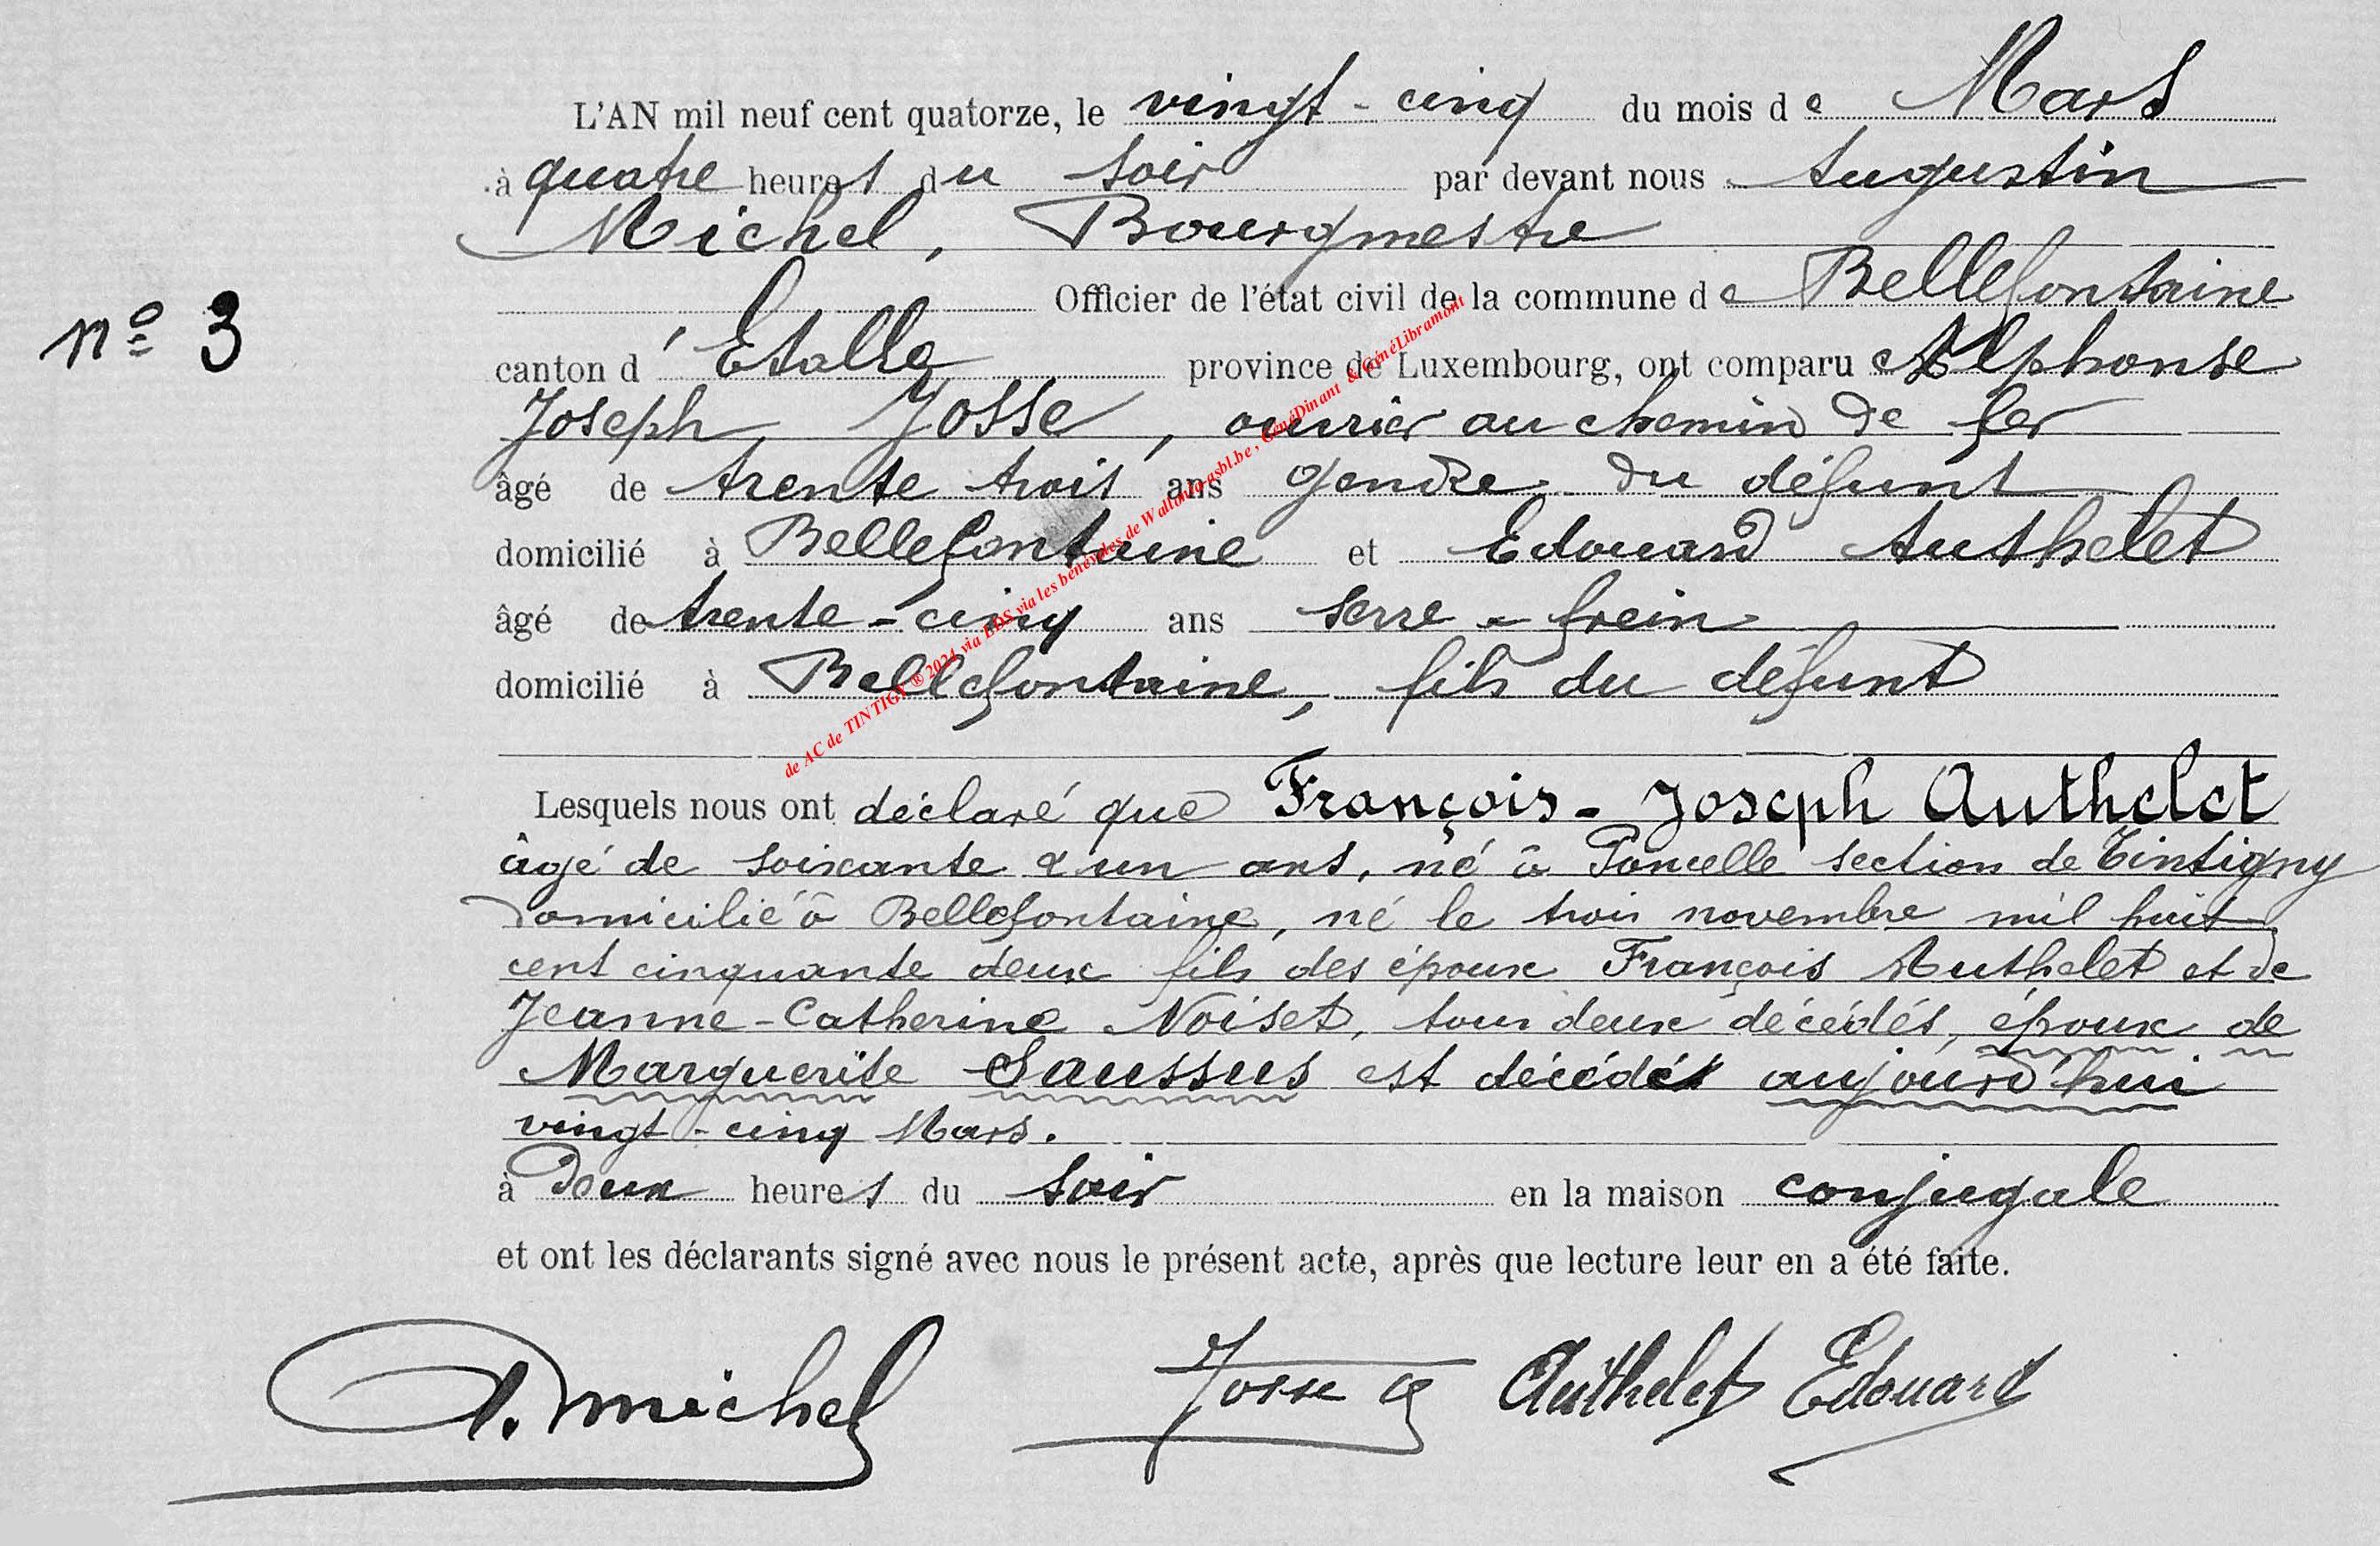 L'AN mil neuf cent quatorze, le vingt-cinq du mois de Mars
à quatre heures du soir par devant nous Augustin
Michel, Bourgmestre
Officier de l'état civil de la commune de Bellefontaine
n° 3
canton d'Etalle province de Luxembourg, ont comparu Alphonse
Joseph Josse, ouvrier au chemin de fer
âgé de trente trois ans gendre du défunt
domicilié à Bellefontaine et Edouard Authelet
âgé de trente-cinq ans serre-frein
domicilié à Bellefontaine, fils du défunt
de AC de TINTIGNY ® 2024 via EDS via les bénévoles de Wallonia-asbl.be, GénéDinant & GénéLibramont
Lesquels nous ont déclaré que François-Joseph Authelet
âgé de soixante & un ans, né à Poncelle section de Tintigny
domicilié à Bellefontaine, né le trois novembre mil huit
cent cinquante deux fils des époux François Authelet et de
Jeanne-Catherine Noiset, tous deux décédés, époux de
Marguerite Saussus est décédé aujourd'hui
vingt-cinq Mars.
à Deux heures du soir en la maison conjugale
et ont les déclarants signé avec nous le présent acte, après que lecture leur en a été faite.
A. Michel Josse Authelet Edouard